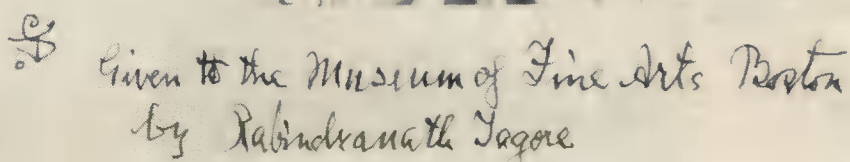 Given to the Museum of Fine Arts Boston
by Rabindranath Tagore